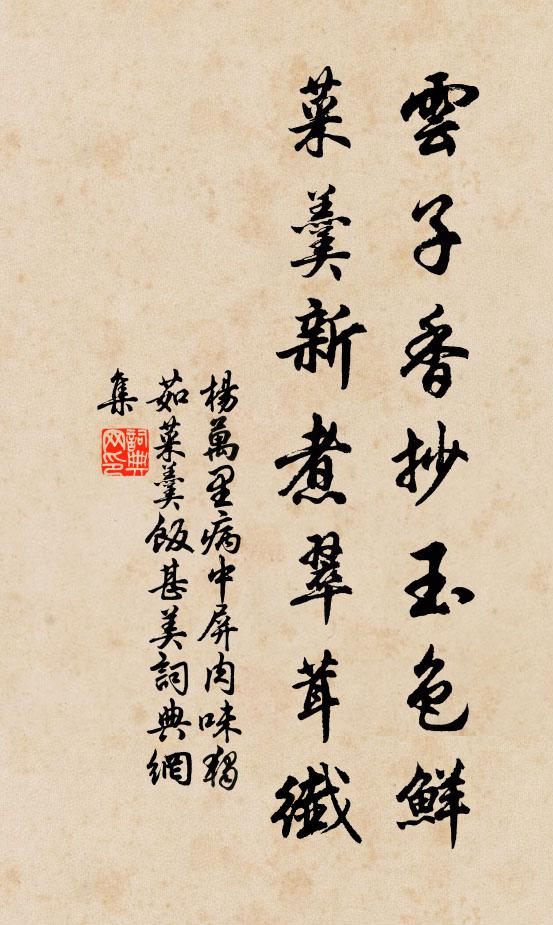 雲子香抄玉色鮮
菜羹新煮翠茸纖
楊萬里病中屏肉味獨
茹菜羹飯甚美詞典網
集
詞典
网印